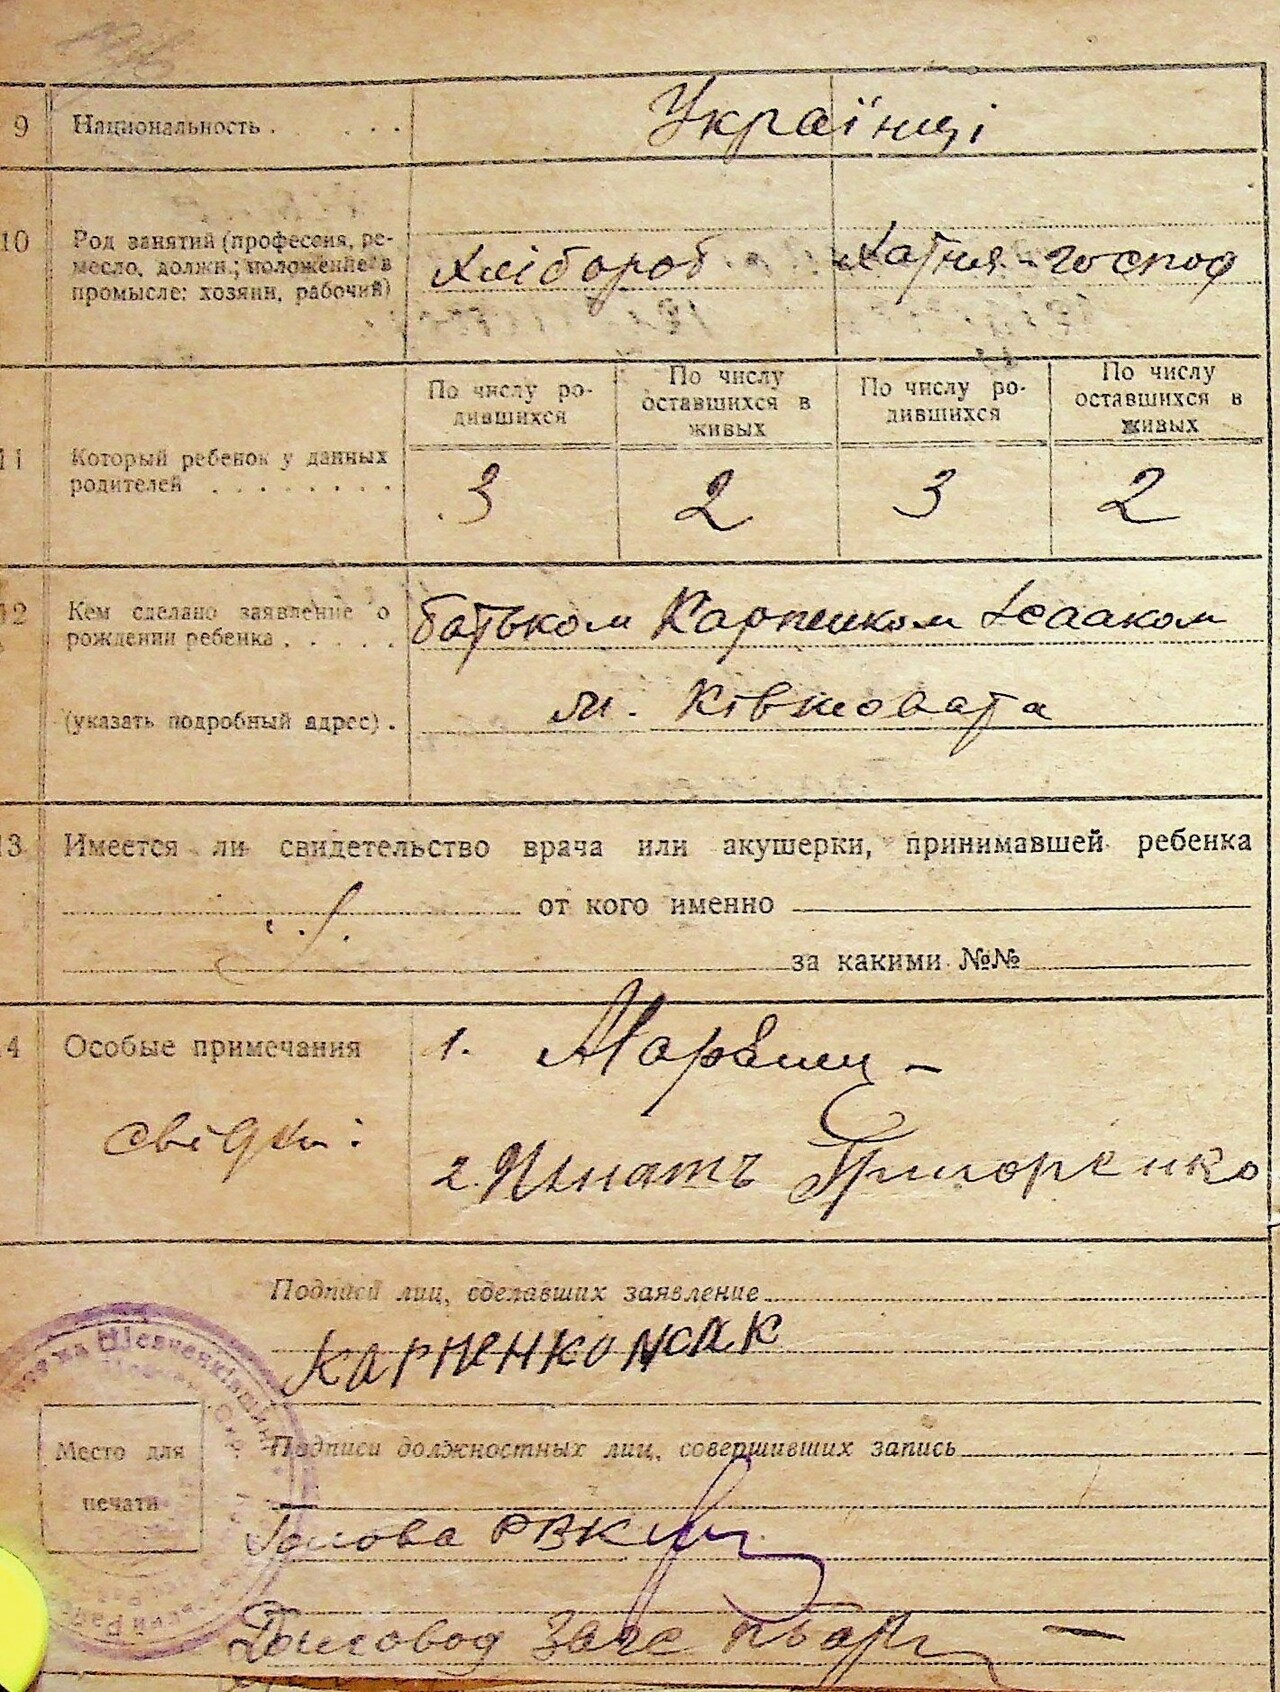 9 Национальность . . . . . . Українці
10 Род занятий (професеия, ре-
месло, должн.; положение в
промысле: хозяин, рабочий)
хлібороб хатня-господ
По числу ро-
дившихся
По числу
оставшихся в
живых
По числу ро-
дившихся
По числу
оставшихся в
живых
11 Который ребенок у данных
родителей . . . . . . . .
3 2 3 2
12 Кем сделано заявление о
рождении ребенка . . . . .
батьком Карпенком Ісааком
(указать подробный адрес) .
м. Ківшовата
13 Имеется ли свидетельство врача или акушерки, принимавшей ребенка
от кого именно
за какими №№
14 Особые примечания
свідки:
1.
2. Игнатъ Григоренко
Подписи лиц, сделавших заявление
КАРПЕНКО ИСАК
Подписи должностных лиц, совершивших запись
Место для
печати
Голова РВК
Діловод